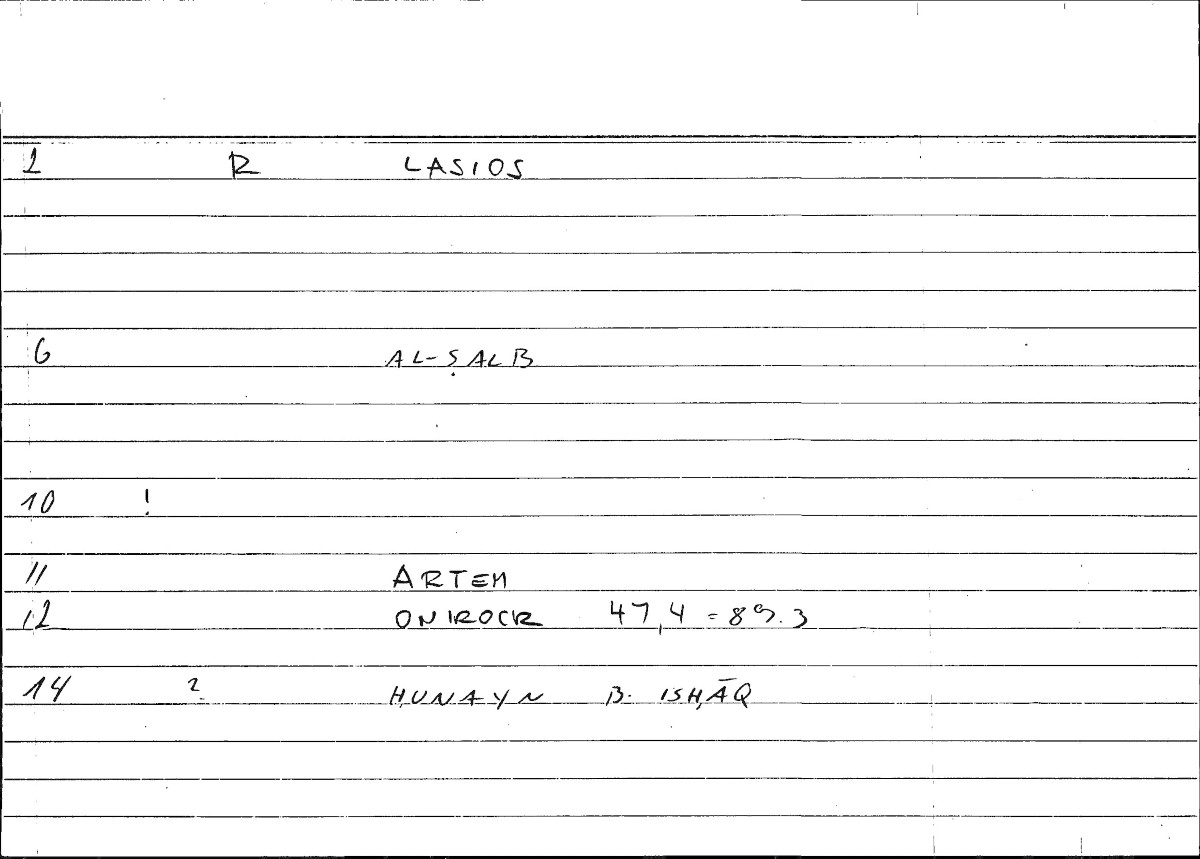 1 R LASIOS
6 AL-ṢALB
10 !
11 ARTEM
12 ONIROCR 47,4 = 89.3
14 ? ḤUNAYN B. ISḤĀQ